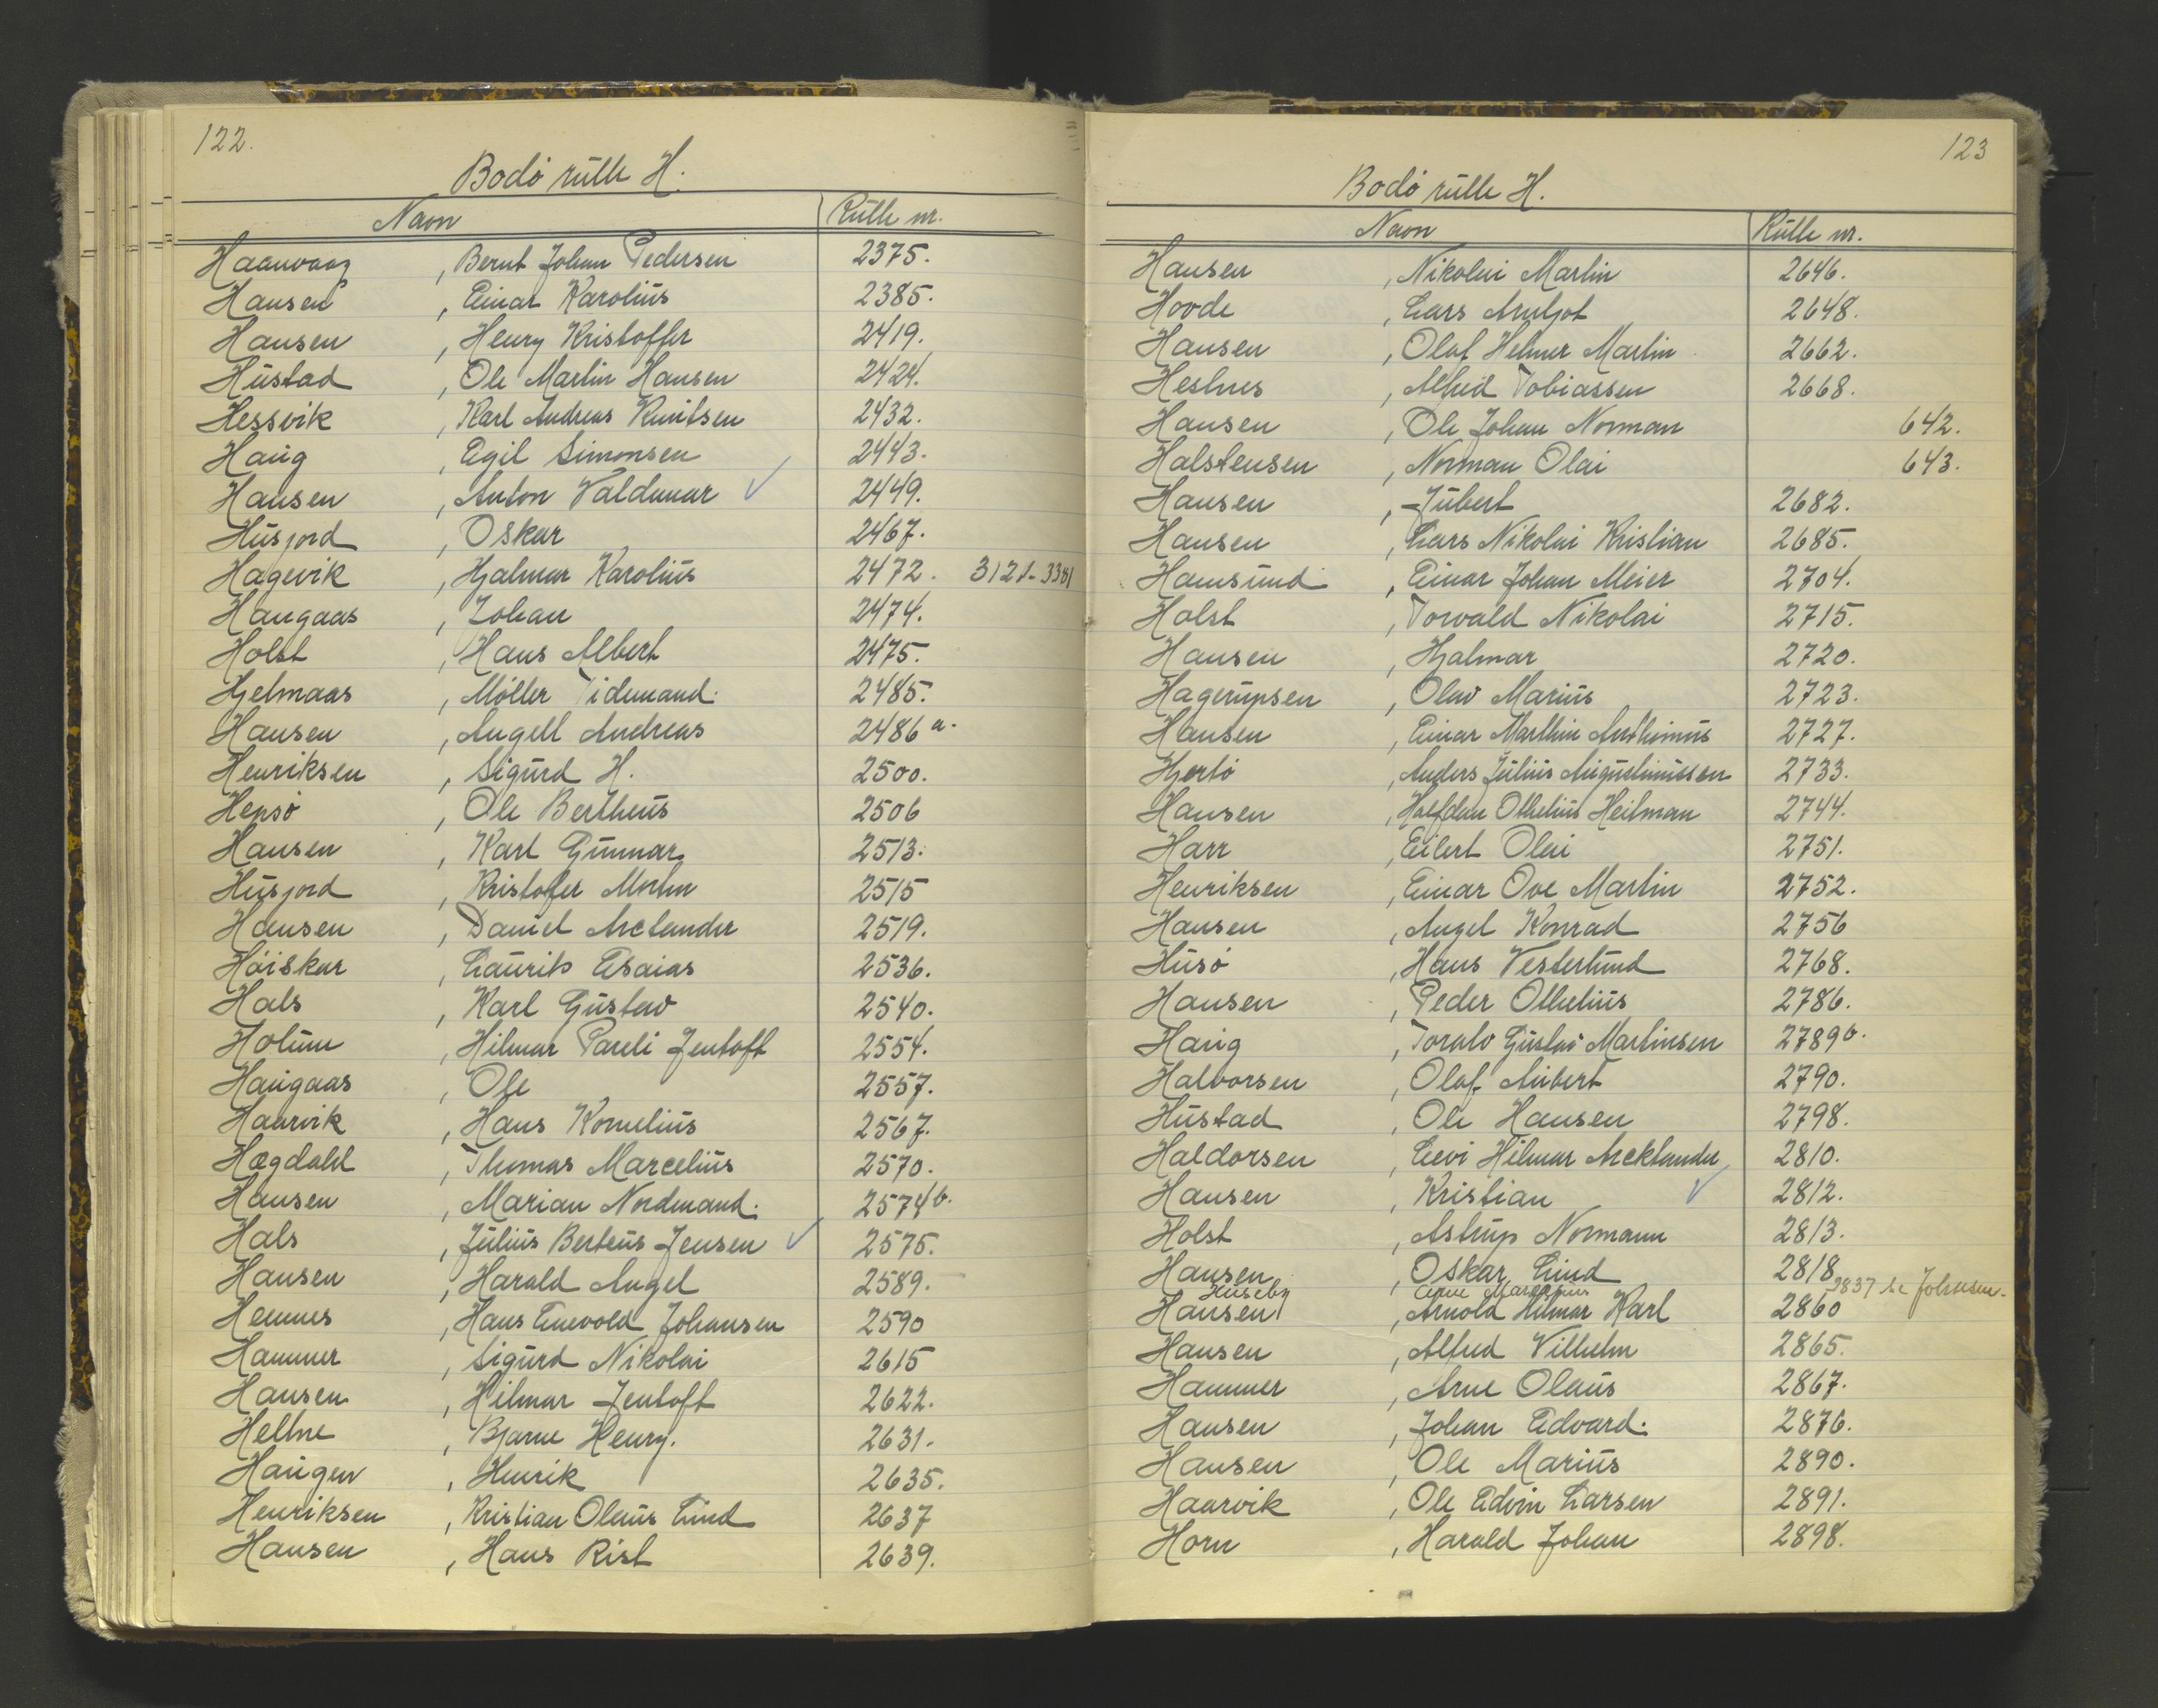 122.
Bodø rulle H.
Navn Rulle nr.
Haanvaag , Bernt Johan Pedersen 2375.
Hansen , Einar Karolius 2385.
Hansen , Henry Kristoffer 2419.
Hustad , Ole Martin Hansen 2424.
Hessvik , Karl Andreas Knutsen 2432.
Haug , Egil Simonsen 2443.
Hansen , Anton Valdemar ✓ 2449.
Husjord , Oskar 2467.
Hagevik , Hjalmar Karolius 2472. 3121-3381
Haugaas , Johan 2474.
Holst , Hans Albert 2475.
Hjelmaas , Møller Tidemand. 2485.
Hansen , Angell Andreas 2486 a.
Henriksen , Sigurd H. 2500.
Hepsø , Ole Bertheus 2506
Hansen , Karl Gunnar 2513.
Husjord , Kristofer Martin 2515
Hansen , Daniel Arclander 2519.
Høiskar , Laurits Esaias 2536.
Hals , Karl Gustav 2540.
Holum , Hilmar Pareli Jentoft 2554.
Haugaas , Ole 2557.
Haarvik , Hans Kornelius 2567.
Hægdahl , Thomas Marcelius 2570.
Hansen , Marian Nordmand. 2574 b.
Hals , Julius Berteus Jensen ✓ 2575.
Hansen , Harald Angel 2589.
Hemnes , Hans Enevold Johansen 2590
Hammer , Sigurd Nikolai 2615
Hansen , Hilmar Jentoft 2622.
Heltne , Bjarne Henry. 2631.
Haugen , Henrik 2635.
Henriksen , Kristian Olaus Lind 2637
Hansen , Hans Rist 2639.
123
Bodø rulle H.
Navn Rulle nr.
Hansen , Nikolai Martin 2646.
Hovde , Lars Arntjot 2648.
Hansen , Olaf Helmer Martin 2662.
Heslnes , Alfred Tobiassen 2668.
Hansen , Ole Johan Norman 642.
Halstensen , Norman Olai 643.
Hansen , Jubert 2682.
Hansen , Lars Nikolai Kristian 2685.
Hamsund , Einar Johan Meier 2704.
Holst , Torvald Nikolai 2715.
Hansen , Hjalmar 2720.
Hagerupsen , Olav Marius 2723.
Hansen , Einar Marthin Anthimus 2727.
Hjertø , Anders Julius Augustinussen 2733.
Hansen , Halfdan Othelius Heilman 2744.
Harr , Eilert Olai 2751.
Henriksen , Einar Ove Martin 2752.
Hansen , Angel Konrad 2756
Husø , Hans Vesterlund 2768.
Hansen , Peder Othelius 2786.
Haug , Toralv Gustav Martinsen 2789 b.
Halvorsen , Olaf Aubert 2790.
Hustad , Ole Hansen 2798.
Haldorsen , Levi Hilmar Arcklander 2810.
Hansen , Kristian ✓ 2812.
Holst , Astrup Normann 2813.
Hansen , Oskar Lind 2818
Huseby Arne Marcelius 2837 se Johnsen.
Hansen , Arnold Hilmar Karl 2860
Hansen , Alfred Vilhelm 2865.
Hammer , Arne Olaus 2867.
Hansen , Johan Edvard. 2876.
Hansen , Ole Marius 2890.
Haarvik , Ole Edvin Larsen 2891.
Horn , Harald Johan 2898.